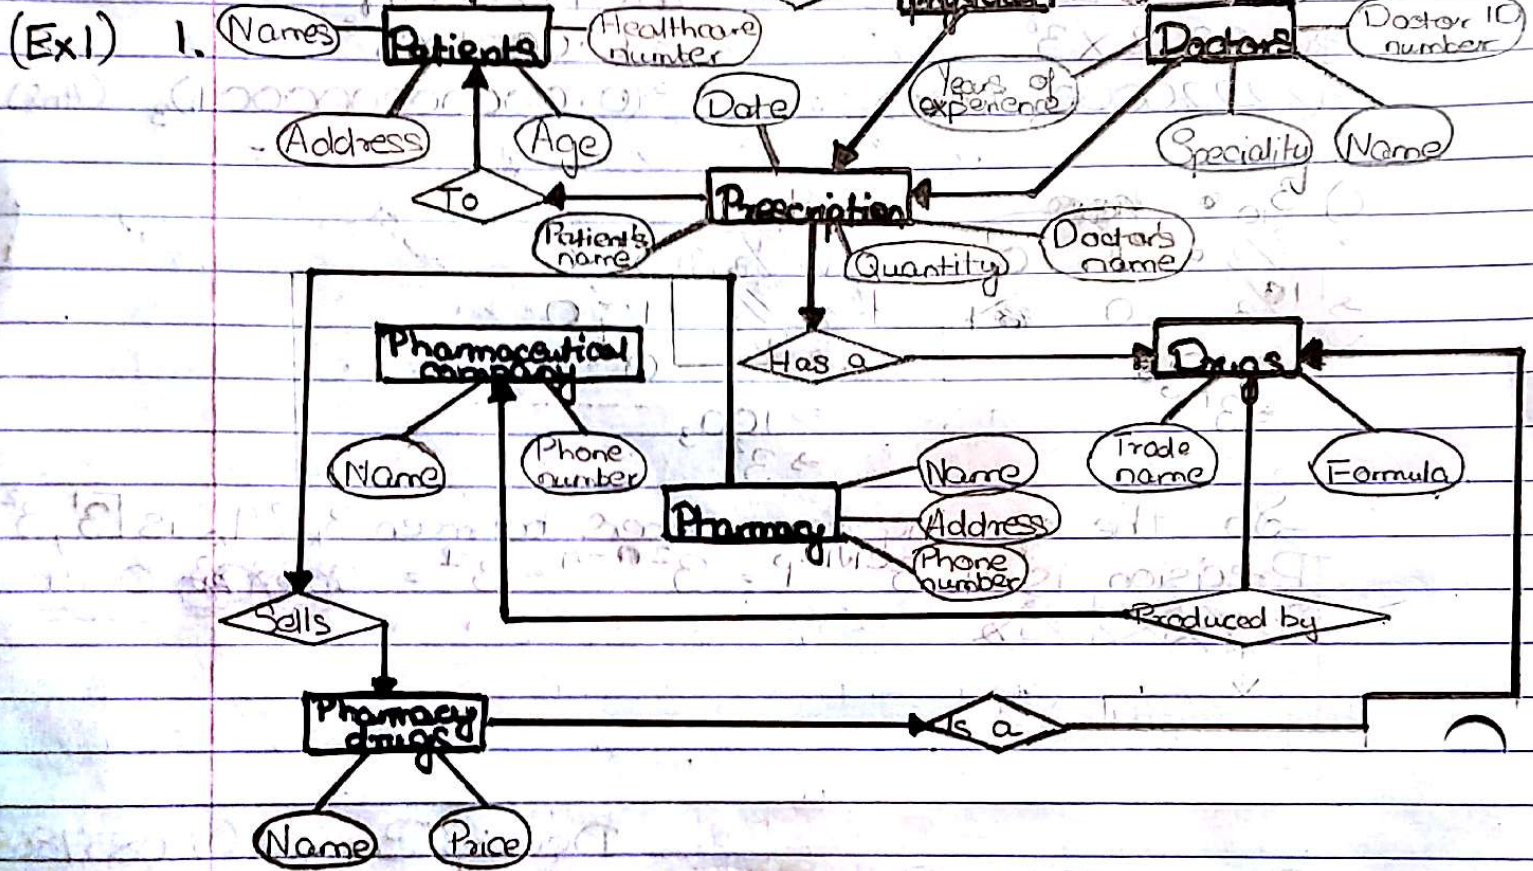 (Ex1) 1.
Names
Patients
Healthcare
number
Doctors
Doctor ID
number
Address
Age
Date
Years of
experience
Speciality
Name
To
Prescription
Patient's
name
Quantity
Doctor's
name
Pharmaceutical
company
Has a
Drugs
Name
Phone
number
Pharmacy
Name
Address
Phone
number
Trade
name
Formula
Sells
Produced by
Pharmacy
drugs
Is a
Name
Price